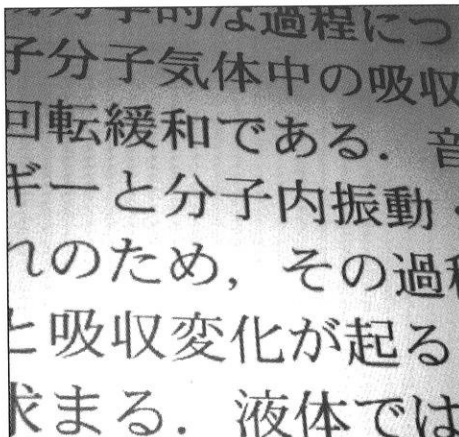 力学的な過程につ
子分子気体中の吸収
回転緩和である．音
ギーと分子内振動・
れのため，その過程
と吸収変化が起る
求まる．液体では